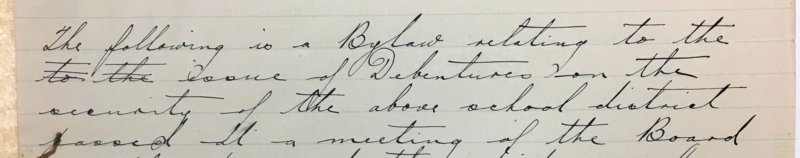 The following is a Bylaw relating to the
to the issue of Debentures on the
security of the above school district
passed at a meeting of the Board